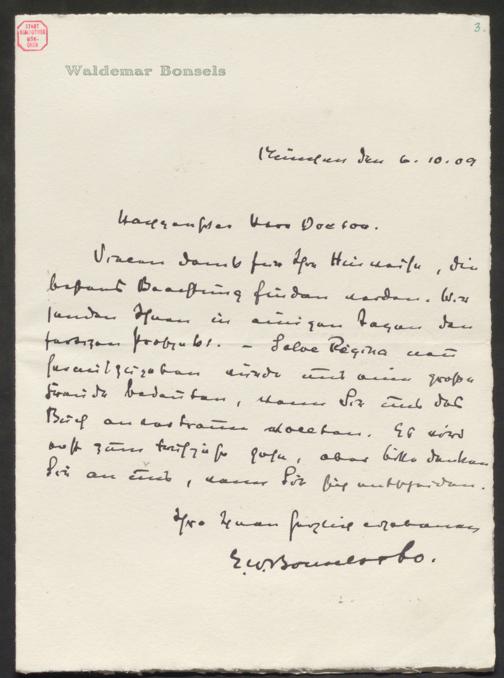 STADT
BIBLIOTHEK
MÜN-
CHEN
3.
Waldemar Bonsels
München den 6. 10. 09
Hochgeehrter Herr Doctor.
Vielen Dank für Ihre Hinweise, die
bestens Beachtung finden werden. Wir
senden Ihnen in einigen Tagen den
fertigen Prospekt. – Salve Regina neu
herauszugeben würde uns eine große
Freude bedeuten, wenn Sie uns das
Buch anvertrauen wollten. Es wird
erst zum Frühjahr gehn, aber bitte denken
Sie an uns, wenn Sie sich entscheiden.
Ihre Ihnen herzlich ergebenen
E.W. Bonsels & Co.